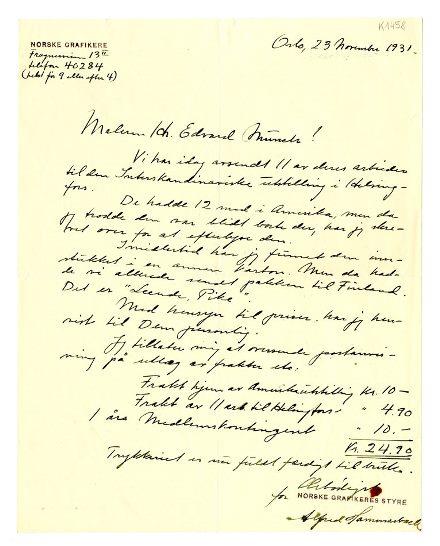 K1458
NORSKE GRAFIKERE
Oslo, 23 November 1931.
telefon 40284
(fekst før 9 eller efter 4)
Malern Hr. Edvard Munch!
Vi har idag avsendt 11 av deres arbeider
til den Interskandinaviske utstilling i Helsing-
fors.
De hadde 12 med i Amerika, men da
jeg trodde den var blidt borte der, har jeg skre-
vet over for at efterlyse den.
Imidlertid har jeg funnet den inn-
stukket i en annen karton. Men da had-
de vi allerede sendt pakken til Finland.
Det er "Leende Pike".
Med hensyn til priser har jeg hen-
vist til Dem personlig.
Jeg tillater mig at oversende postanvis-
ning på utlæg av frakter etc.
Frakt hjem av Amerikautstilling Kr. 10 —
Frakt av 11 arb. til Helsingfors " 4.90
1 års Medlemskontingent " 10.—
Kr. 24.90
Trykkeriet er nu fuldt færdig til bruk.
Ærbødigst
for NORSKE GRAFIKERES STYRE
Alfred